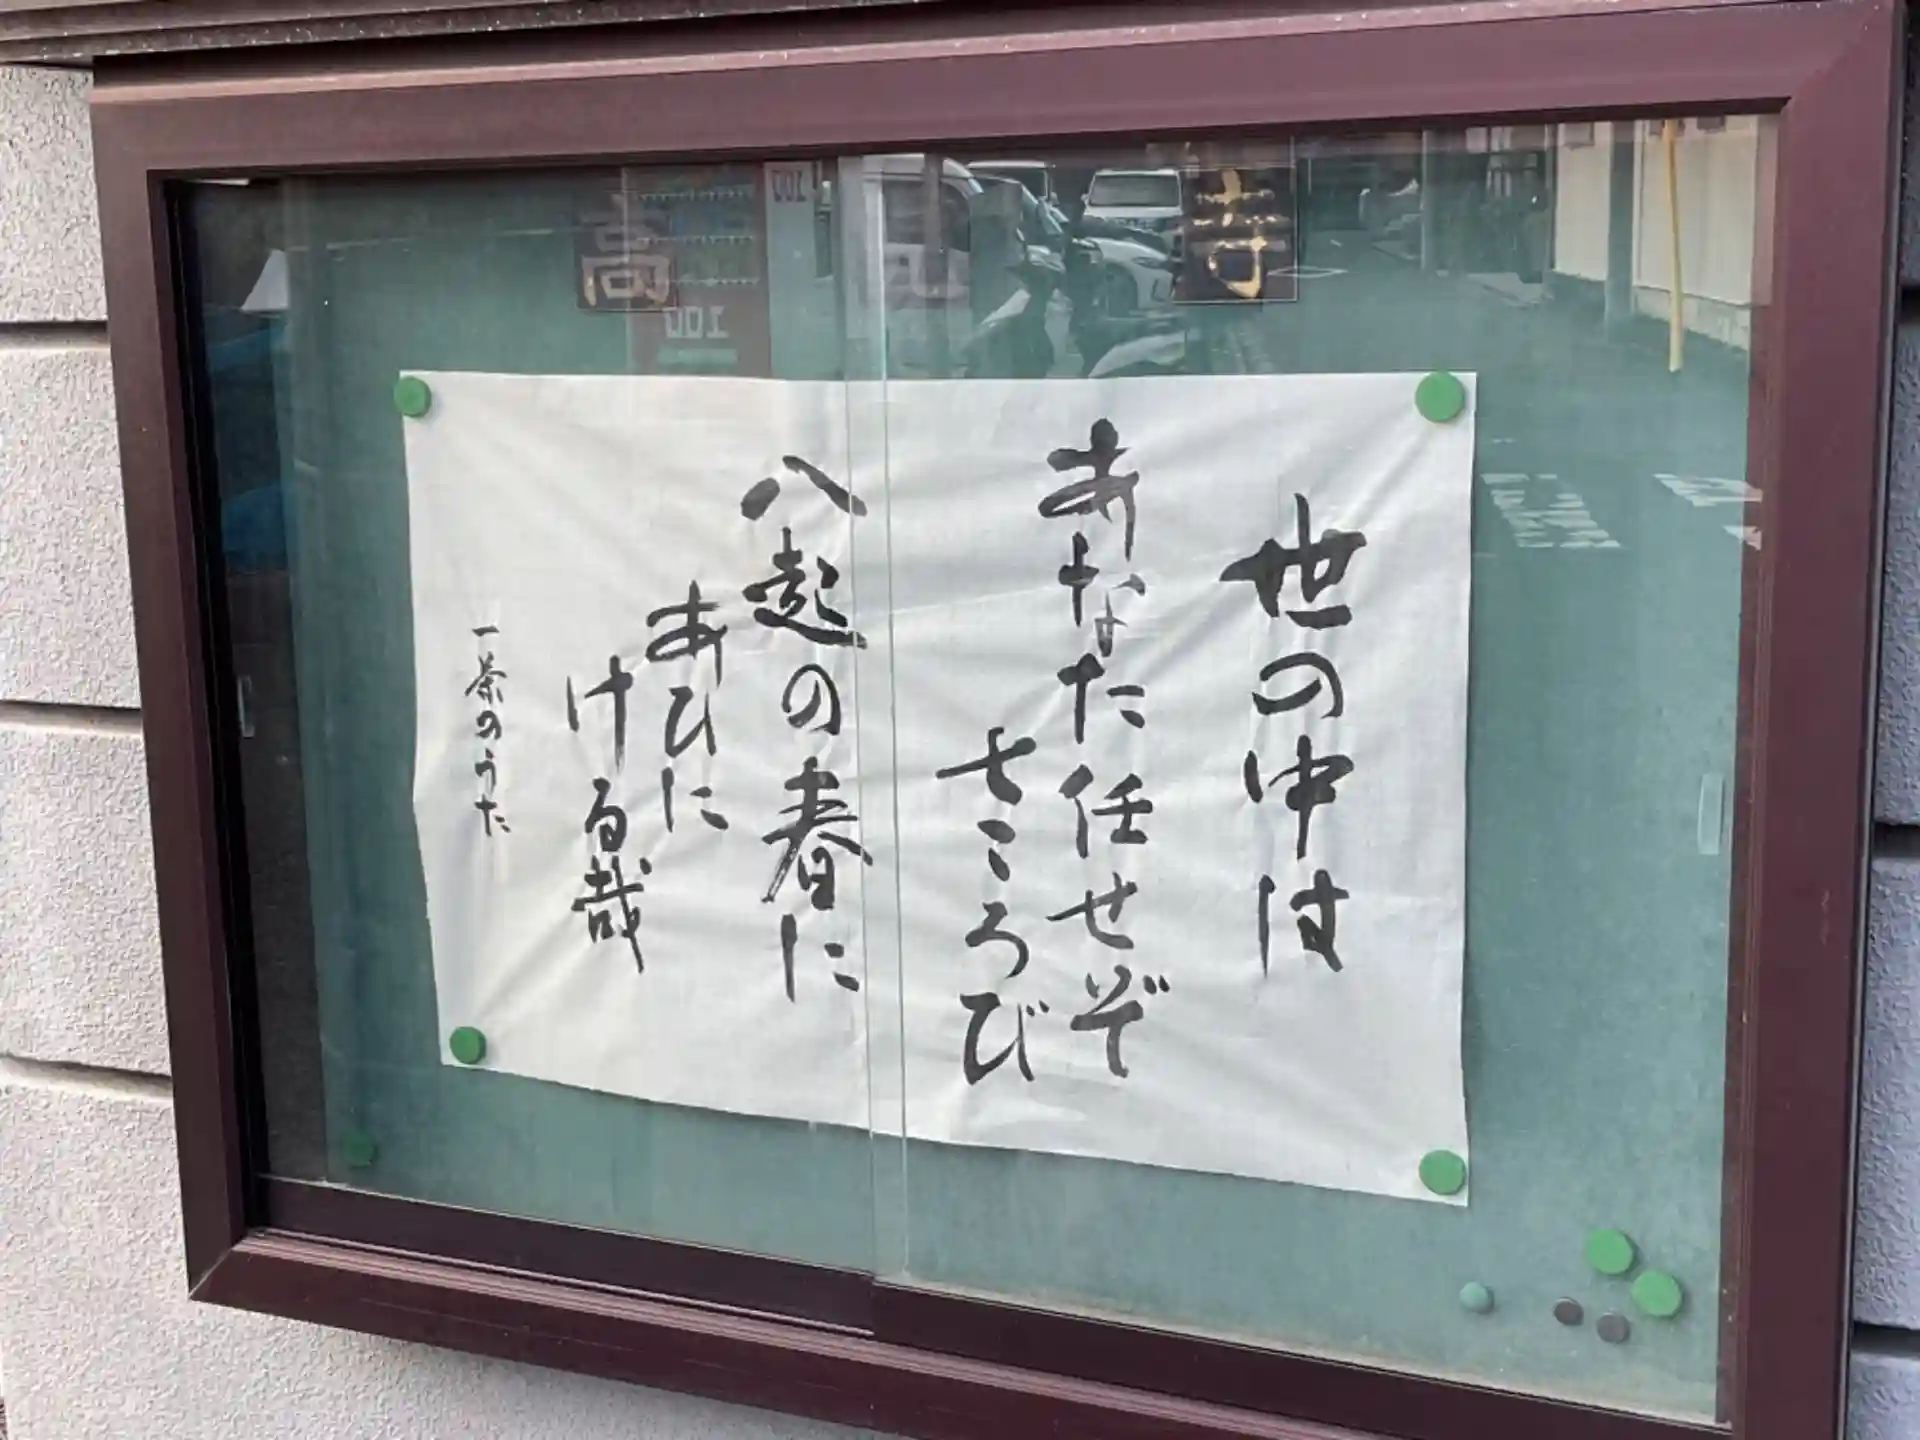 世の中は
あなた任せぞ
七ころび
八起の春に
あひに
ける哉
一茶のうた